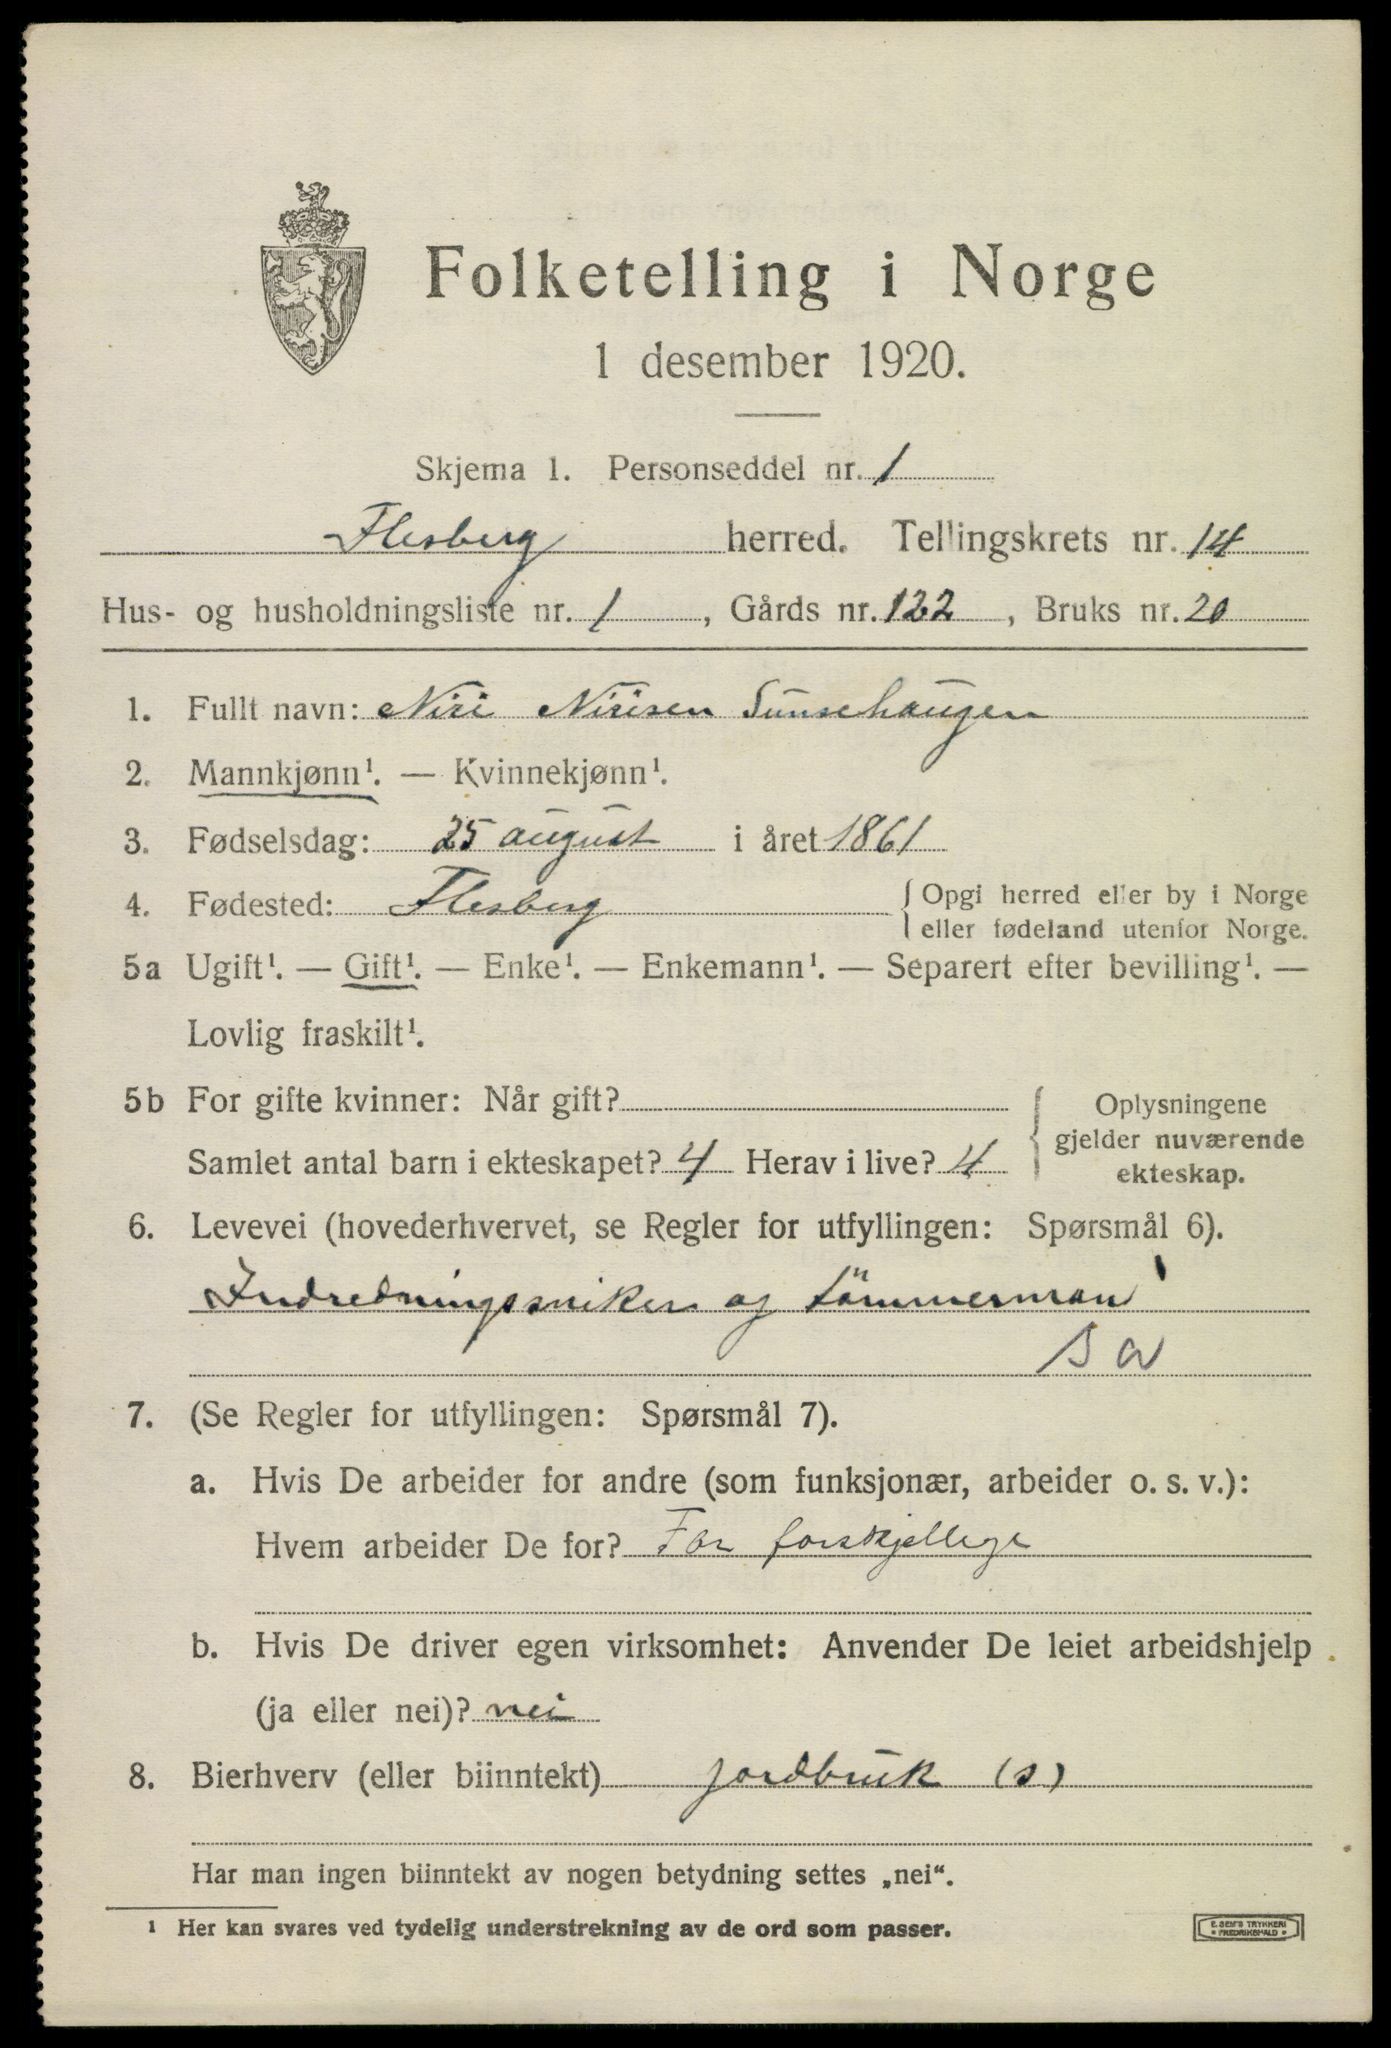 Folketelling i Norge
1 desember 1920.
Skjema 1. Personseddel nr. 1
Flesberg herred. Tellingskrets nr. 14
Hus- og husholdningsliste nr. 1, Gårds nr. 122, Bruks nr. 20
1. Fullt navn: Niri Nirisen Sunsehaugen
2. Mannkjønn¹. — Kvinnekjønn¹.
3. Fødselsdag: 25 august i året 1861
4. Fødested: Flesberg { Opgi herred eller by i Norge
eller fødeland utenfor Norge.
5a Ugift¹. — Gift¹. — Enke¹. — Enkemann¹. — Separert efter bevilling¹. —
Lovlig fraskilt¹.
5b For gifte kvinner: Når gift?
Samlet antal barn i ekteskapet? 4 Herav i live? 4
{ Oplysningene
gjelder nuværende
ekteskap.
6. Levevei (hovederhvervet, se Regler for utfyllingen: Spørsmål 6).
Indredningssniker og tömmerman
s a
7. (Se Regler for utfyllingen: Spørsmål 7).
a. Hvis De arbeider for andre (som funksjonær, arbeider o. s. v.):
Hvem arbeider De for? For forskjellege
b. Hvis De driver egen virksomhet: Anvender De leiet arbeidshjelp
(ja eller nei)? nei
8. Bierhverv (eller biinntekt) jordbruk (s)
Har man ingen biinntekt av nogen betydning settes „nei“.
¹ Her kan svares ved tydelig understrekning av de ord som passer.
E. SEM'S TRYKKERI
* FREDRIKSHALD *